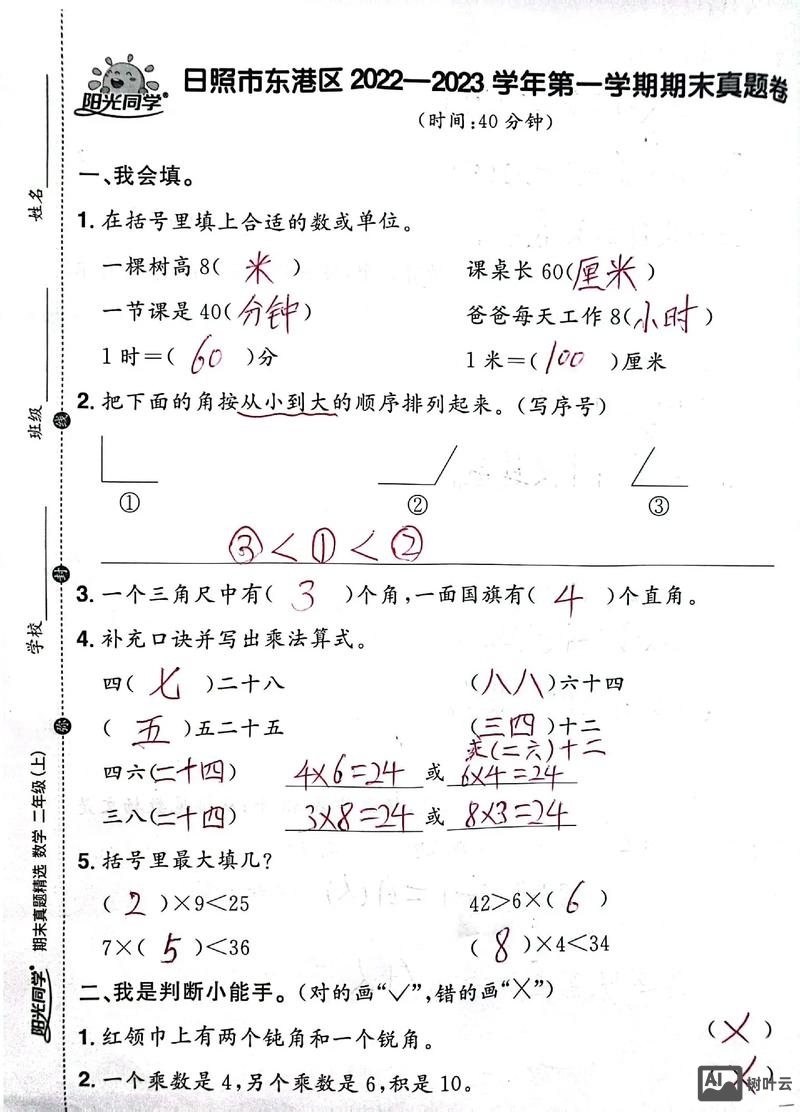 阳光同学 日照市东港区2022—2023学年第一学期期末真题卷
(时间:40分钟)
一、我会填。
1. 在括号里填上合适的数或单位。
一棵树高8( 米 ) 课桌长60(厘米)
一节课是40(分钟) 爸爸每天工作8(小时)
1时=( 60 )分 1米=(100)厘米
2. 把下面的角按从小到大的顺序排列起来。(写序号)
① ② ③
③<①<②
3. 一个三角尺中有( 3 )个角,一面国旗有( 4 )个直角。
4. 补充口诀并写出乘法算式。
四( 七 )二十八 (八八)六十四
( 五 )五二十五 (三四)十二
(二六)十二
四六(二十四) 4×6=24 或 6×4=24
三八(二十四) 3×8=24 或 8×3=24
5. 括号里最大填几?
( 2 )×9<25 42>6×( 6 )
7×( 5 )<36 ( 8 )×4<34
二、我是判断小能手。(对的画“✓”,错的画“×”)
1. 红领巾上有两个钝角和一个锐角。 (×)
2. 一个乘数是4,另个乘数是6,积是10。 (×)
姓名
班级
学校
线
封
弥
阳光同学 期末真题精选 数学 二年级(上)
AI 树叶云